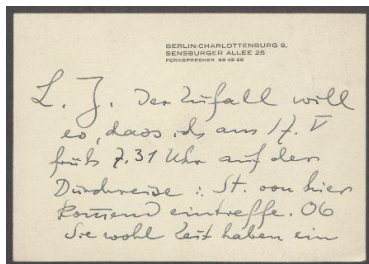 BERLIN-CHARLOTTENBURG 9,
SENSBURGER ALLEE 25
FERNSPRECHER 99 49 20
L. J. Der Zufall will
es, dass ich am 17. V
früh 7.31 Uhr auf der
Durchreise : St. von hier
kommend eintreffe. Ob
Sie wohl Zeit haben ein